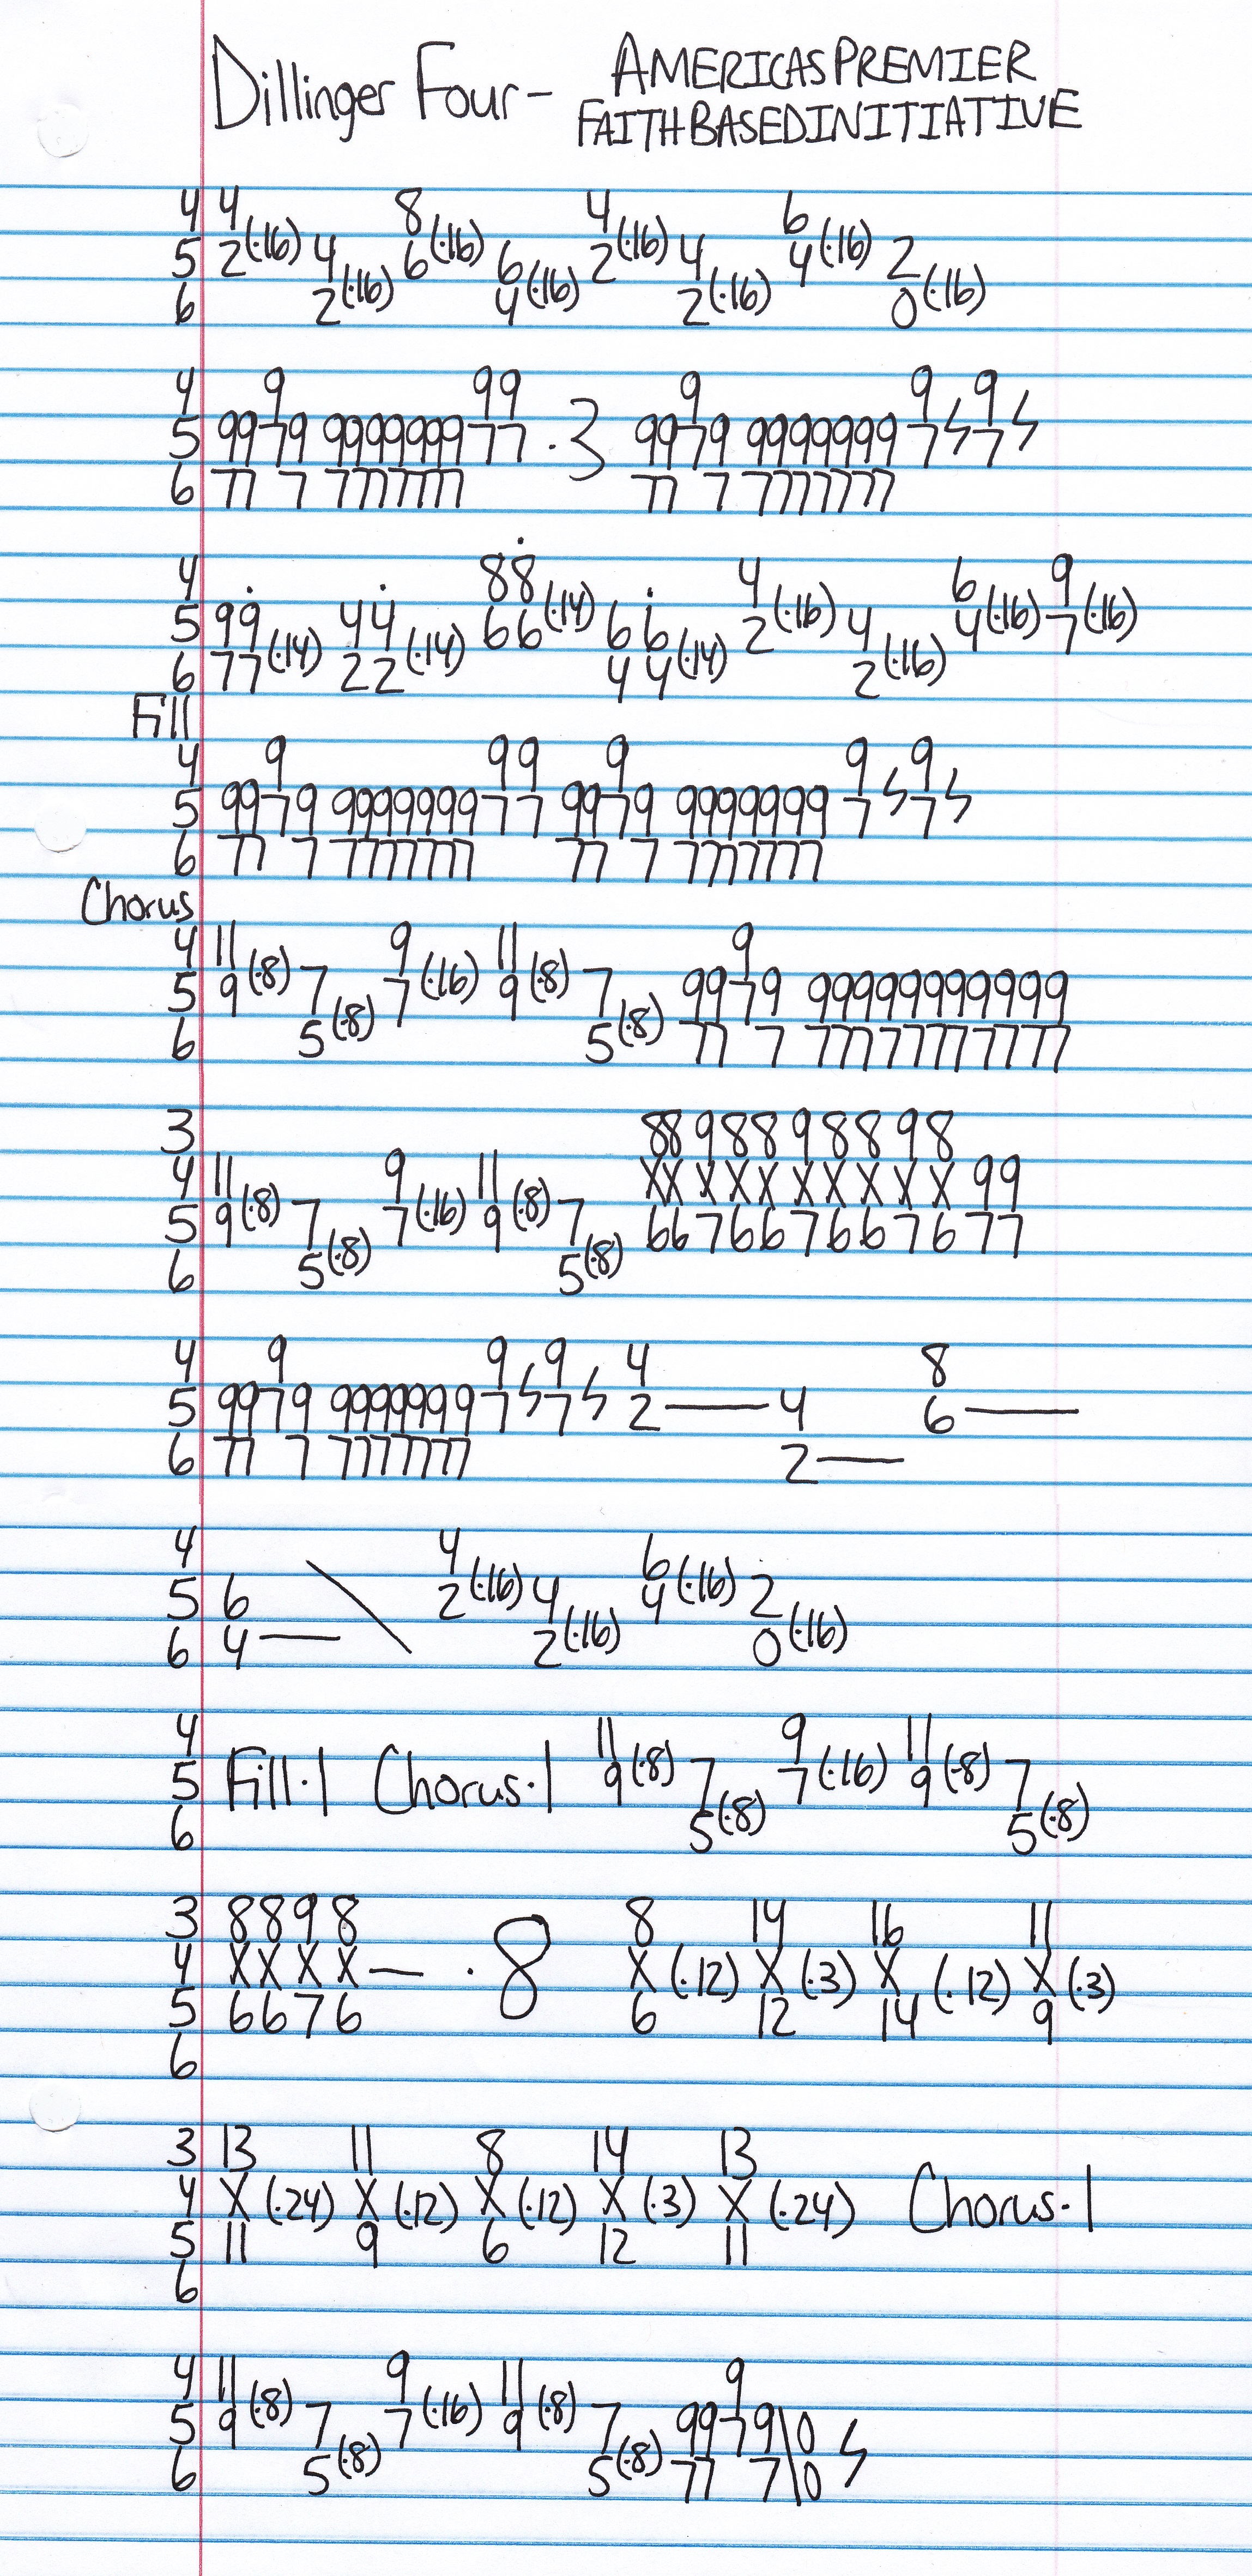 Dillinger Four - AMERICASPREMIER
FAITHBASEDINITIATIVE
4 4 8 4 6
5 2(·16) 4 6(·16) 6 2(·16) 4 4(·16) 2
6 2(·16) 4(·16) 2(·16) 0(·16)
4 9 99 9 9 9
5 9979 999999977 ·3 9979 9999999 7 ϟ 7 ϟ
6 77 7 7777777 77 7 7777777
4 88 4 6 9
5 99 44 66(·14) 66 2(·16) 4 4(·16) 7(·16)
6 77(·14) 22(·14) 44(·14) 2(·16)
Fill
4 9 99 9 9 9
5 9979 999999977 9979 9999999 7 ϟ 7 ϟ
6 77 7 7777777 77 7 7777777
Chorus
4 11 9 11 9
5 9(·8) 7 7(·16) 9(·8) 7 9979 99999999999
6 5(·8) 5(·8) 77 7 77777777777
3 8898898898
4 11 9 11 XXXXXXXXXX99
5 9(·8) 7 7(·16) 9(·8) 7 667667667677
6 5(·8) 5(·8)
4 9 9 9 4 8
5 9979 9999999 7 ϟ 7 ϟ 2— 4 6—
6 77 7 7777777 2—
4 4 6
5 6 \ 2(·16) 4 4(·16) 2
6 4— 2(·16) 0(·16)
4 11 9 11
5 Fill·1 Chorus·1 9(·8) 7 7(·16) 9(·8) 7
6 5(·8) 5(·8)
3 8898 8 14 16 11
4 XXXX— ·8 X(·12) X(·3) X(·12) X(·3)
5 6676 6 12 14 9
6
3 13 11 8 14 13
4 X(·24) X(·12) X(·12) X(·3) X(·24) Chorus·1
5 11 9 6 12 11
6
4 11 9 11 9
5 9(·8) 7 7(·16) 9(·8) 7 9979\0 ϟ
6 5(·8) 5(·8) 77 7\0